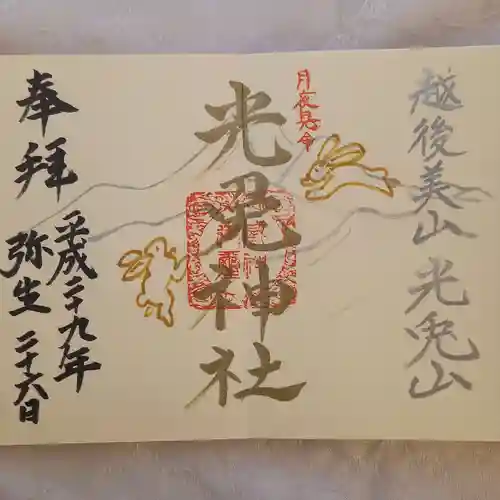 越後美山 光兎山
月夜見命
光兎神社
奉拝
平成二十九年
弥生二十六日